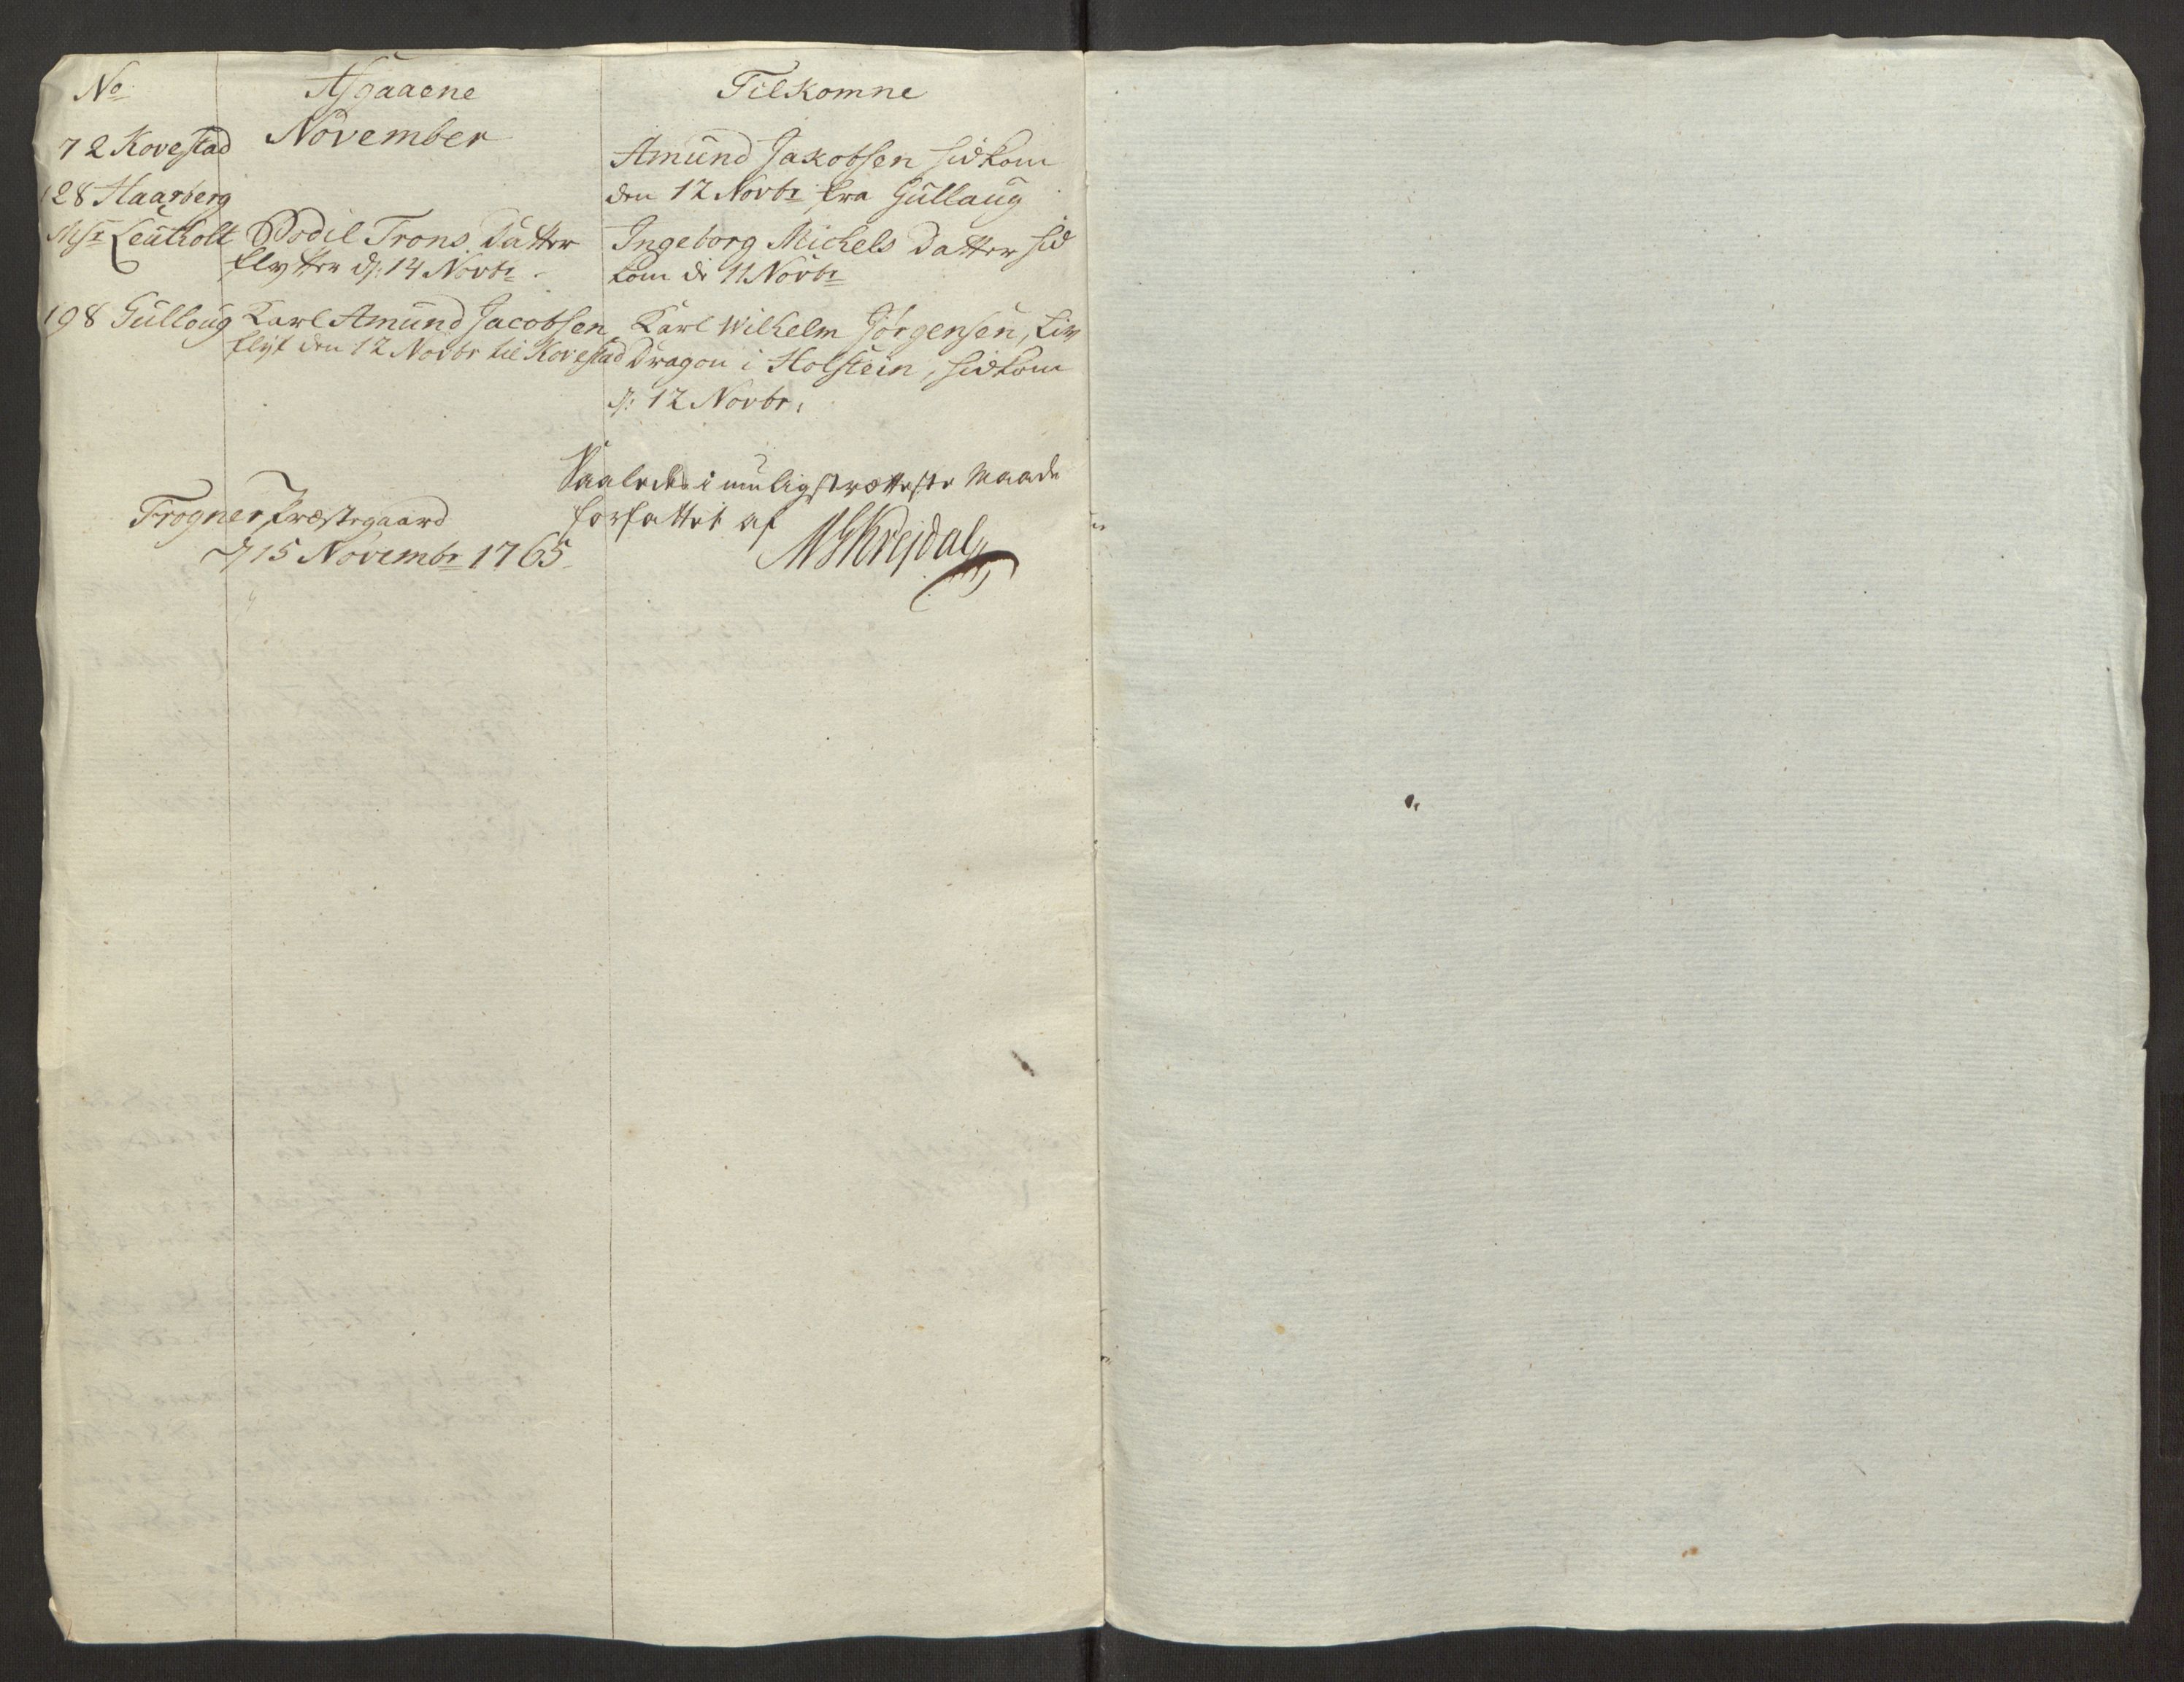 No Afgaaene Tilkomne
November
72 Kovestad Amund Jakobsen hidkom
den 12 Novbr fra Gullaug
128 Haarberg
Msr Leutholt Bodil Trons Datter Ingeborg Michels Datter hid
flytter d: 14 Novbr. kom d 11 Novbr
198 Gulloug Karl Amund Jacobsen Karl Wilhelm Jörgensen, Liv
flyt den 12 Novbr til Kovestad Dragon i Holstein, hidkom
d: 12 Novbr.
Saaledes i muligst rætteste Maade
Trogner Præstegaard forfattet af
d 15 Novembr 1765.